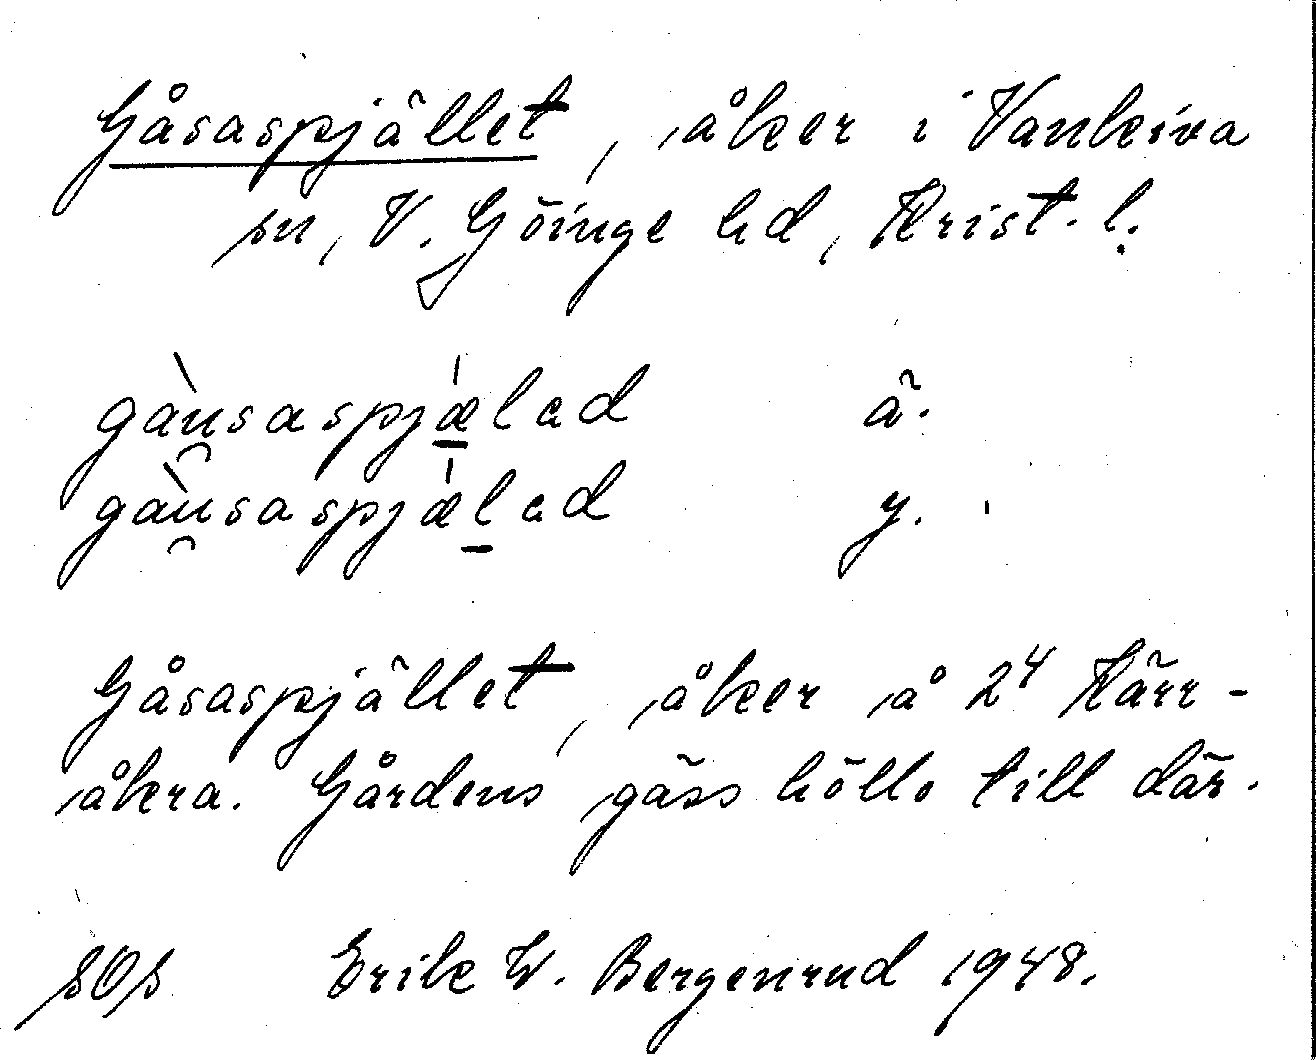 Gåsaspjället, åker i Vankiva
sn, V. Göinge hd, Krist. l.
gàu̯saspjǽ̠lad ä.
gàu̯saspjǽl̠ad y.
Gåsaspjället, åker å 2⁴ Kärr-
åkra. Gårdens gäss höllo till där.
SOS Erik W. Bergenrud 1948.